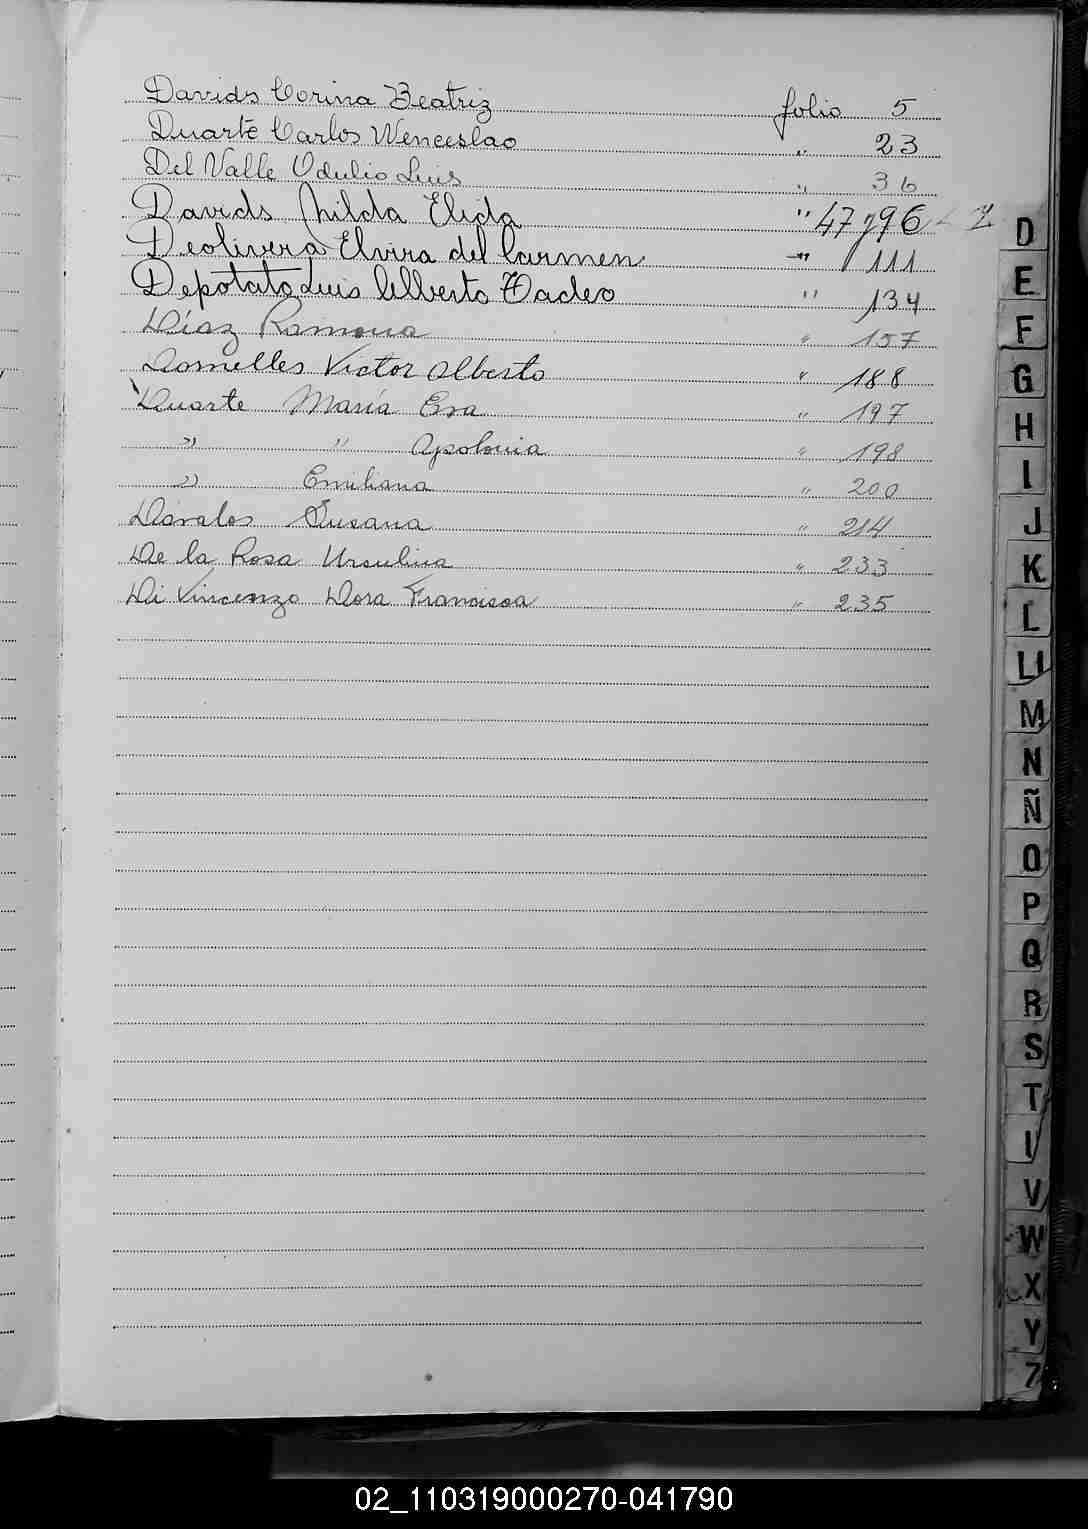 Davids Corina Beatriz folio 5
Duarte Carlos Wenceslao " 23
Del Valle Odulio Luis " 36
Davids Hilda Elida " 47 y 96
Deolivera Elvira del Carmen " 111
Depotato Luis Alberto Tadeo " 134
Díaz Ramona " 157
Dornelles Victor Alberto " 188
Duarte María Eva " 197
" " Apolonia " 198
" Emiliana " 200
Dávalos Susana " 214
De la Rosa Ursulina " 233
Di Vincenzo Dora Francisca " 235
D
E
F
G
H
I
J
K
L
Ll
M
N
Ñ
O
P
Q
R
S
T
U
V
W
X
Y
Z
02_110319000270-041790